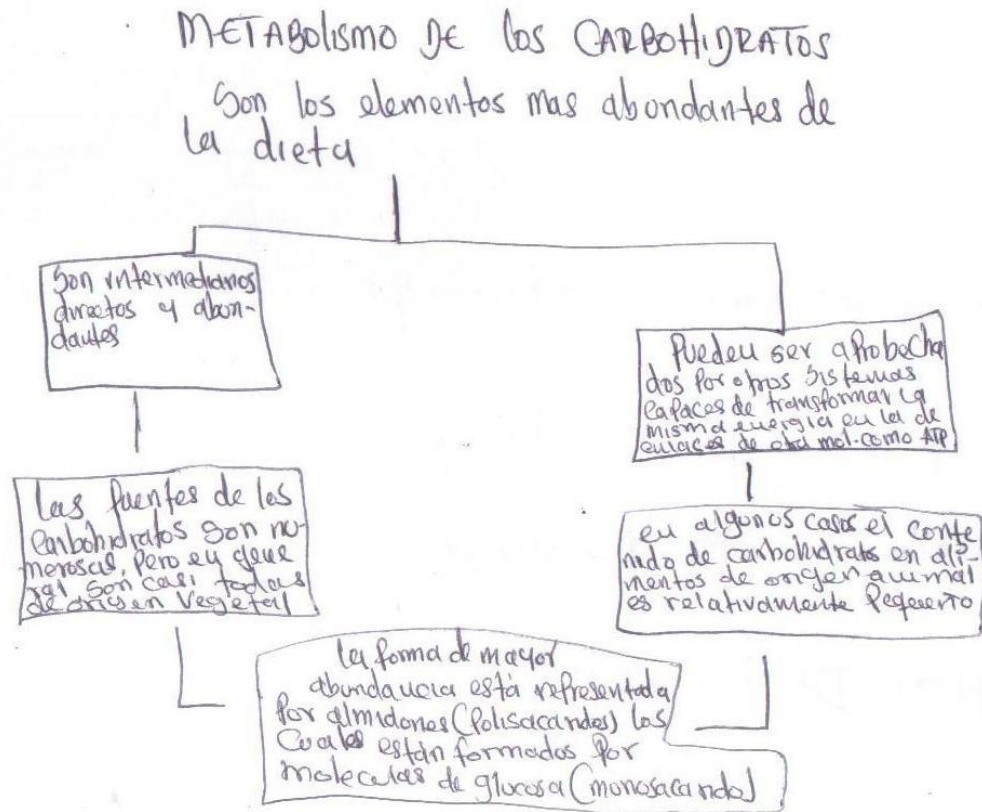 METABOLISMO DE los CARBOHIDRATOS
Son los elementos mas abundantes de
la dieta
Son intermediarios
directos y abun-
dantes
Pueden ser aprobecha
dos por otros sistemas
capaces de transformar la
misma energia en la de
enlaces de otra mol. como ATP
las fuentes de los
carbohidratos son nu-
merosas, pero en gene
ral son casi todas
de origen vegetal
en algunos casos el conte
nido de carbohidrats en ali-
mentos de origen animal
es relativamente pequeño
la forma de mayor
abundancia está representada
por almidones (Polisacaridos) los
cuales están formados por
moleculas de glucosa (monosacarido)